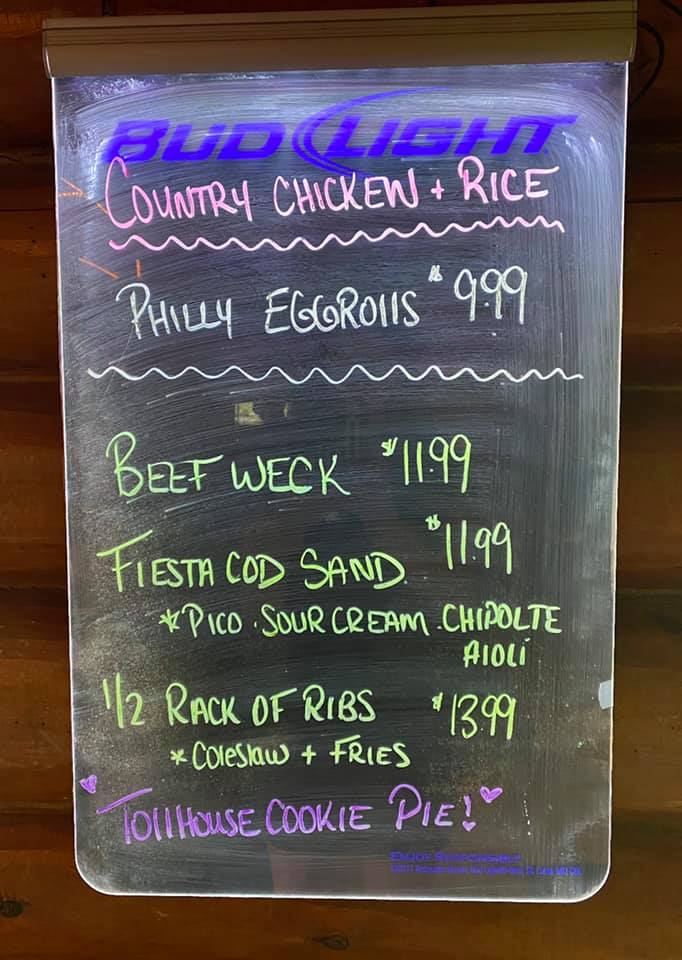 BUD LIGHT
COUNTRY CHICKEN + RICE
PHILLY EGGROllS $9.99
BEEF WECK $11.99
FIESTA COD SAND. $11.99
*PICO · SOUR CREAM · CHIPOLTE
AIOLI
1/2 RACK OF RIBS $13.99
* Coleslaw + FRIES
TOllHOUSE COOKIE PIE!
ENJOY RESPONSIBLY